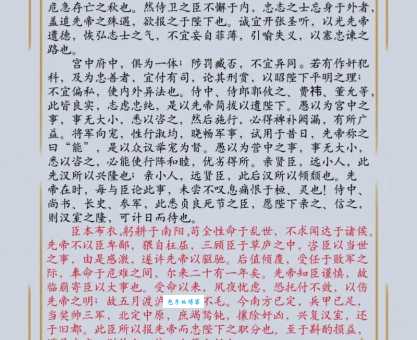 危急存亡之秋也。然侍卫之臣不懈于内，忠志之士忘身于外者，
盖追先帝之殊遇，欲报之于陛下也。诚宜开张圣听，以光先帝
遗德，恢弘志士之气，不宜妄自菲薄，引喻失义，以塞忠谏之
路也。
宫中府中，俱为一体；陟罚臧否，不宜异同。若有作奸犯
科，及为忠善者，宜付有司，论其刑赏，以昭陛下平明之理；
不宜偏私，使内外异法也。侍中、侍郎郭攸之、费祎、董允等，
此皆良实，志虑忠纯，是以先帝简拔以遗陛下。愚以为宫中之
事，事无大小，悉以咨之，然后施行，必得裨补阙漏，有所广
益。将军向宠，性行淑均，晓畅军事，试用于昔日，先帝称之
曰“能”，是以众议举宠为督。愚以为营中之事，事无大小，
悉以咨之，必能使行阵和睦，优劣得所。亲贤臣，远小人，此
先汉所以兴隆也；亲小人，远贤臣，此后汉所以倾颓也。先
帝在时，每与臣论此事，未尝不叹息痛恨于桓、灵也！侍中、
尚书、长史、参军，此悉贞良死节之臣，愿陛下亲之、信之，
则汉室之隆，可计日而待也。
臣本布衣，躬耕于南阳，苟全性命于乱世，不求闻达于诸侯。
先帝不以臣卑鄙，猥自枉屈，三顾臣于草庐之中，咨臣以当世
之事，由是感激，遂许先帝以驱驰。后值倾覆，受任于败军之
际，奉命于危难之间，尔来二十有一年矣。先帝知臣谨慎，故
临崩寄臣以大事也。受命以来，夙夜忧虑，恐托付不效，以伤
先帝之明；故五月渡 不毛。今南方已定，兵甲已足，
当奖帅三军，北定中原，庶竭驽钝，攘除奸凶，兴复汉室，还
于旧都。此臣所以报先帝而忠陛下之职分也。至于斟酌损益，